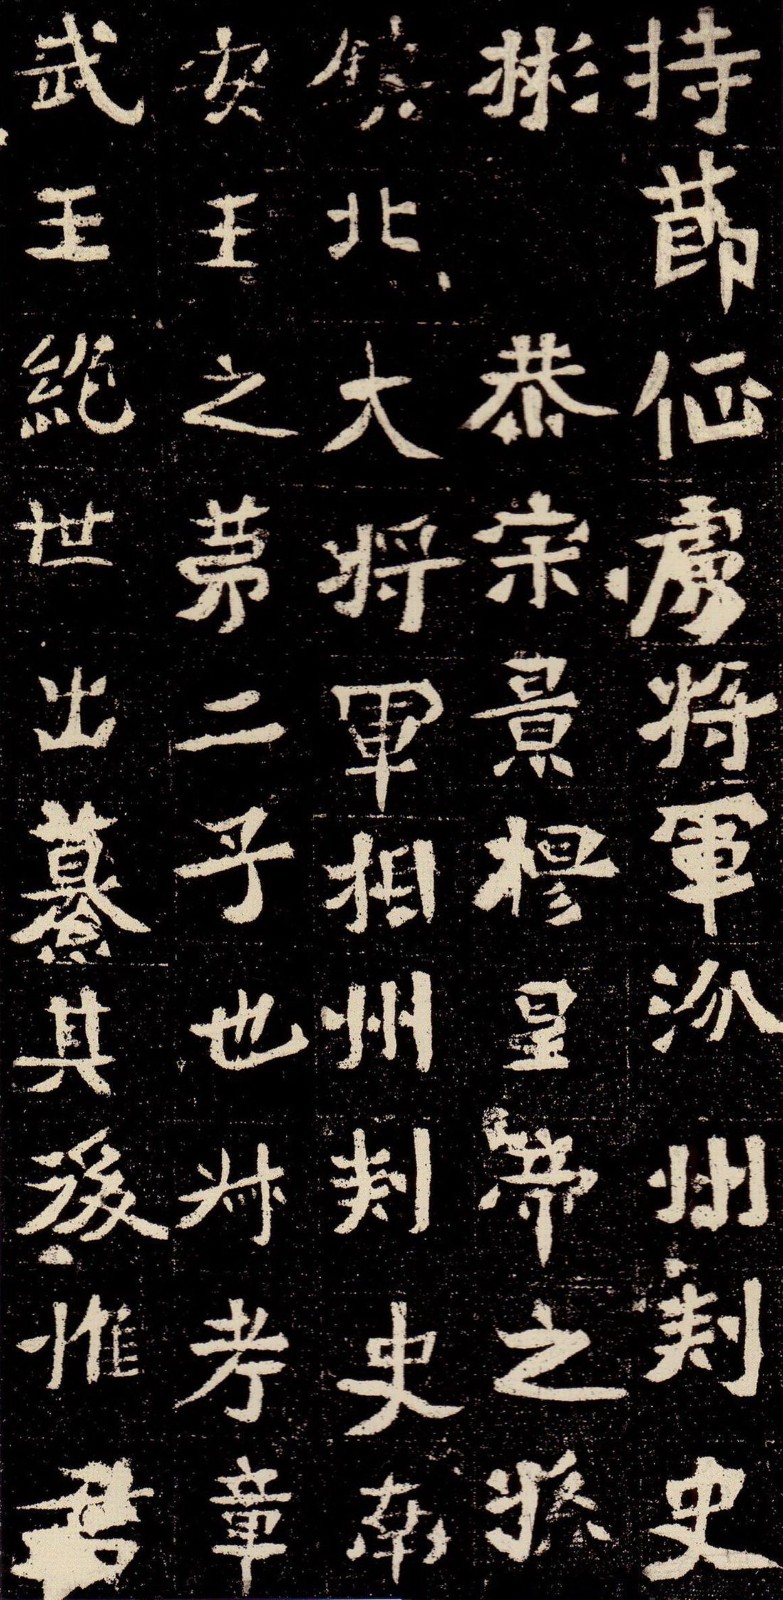 持節征虜將軍汾州刺史
彬　恭宗景穆皇帝之孫
鎮北大將軍相州刺史南
安王之第二子也叔考章
武王絕世出纂其後惟君